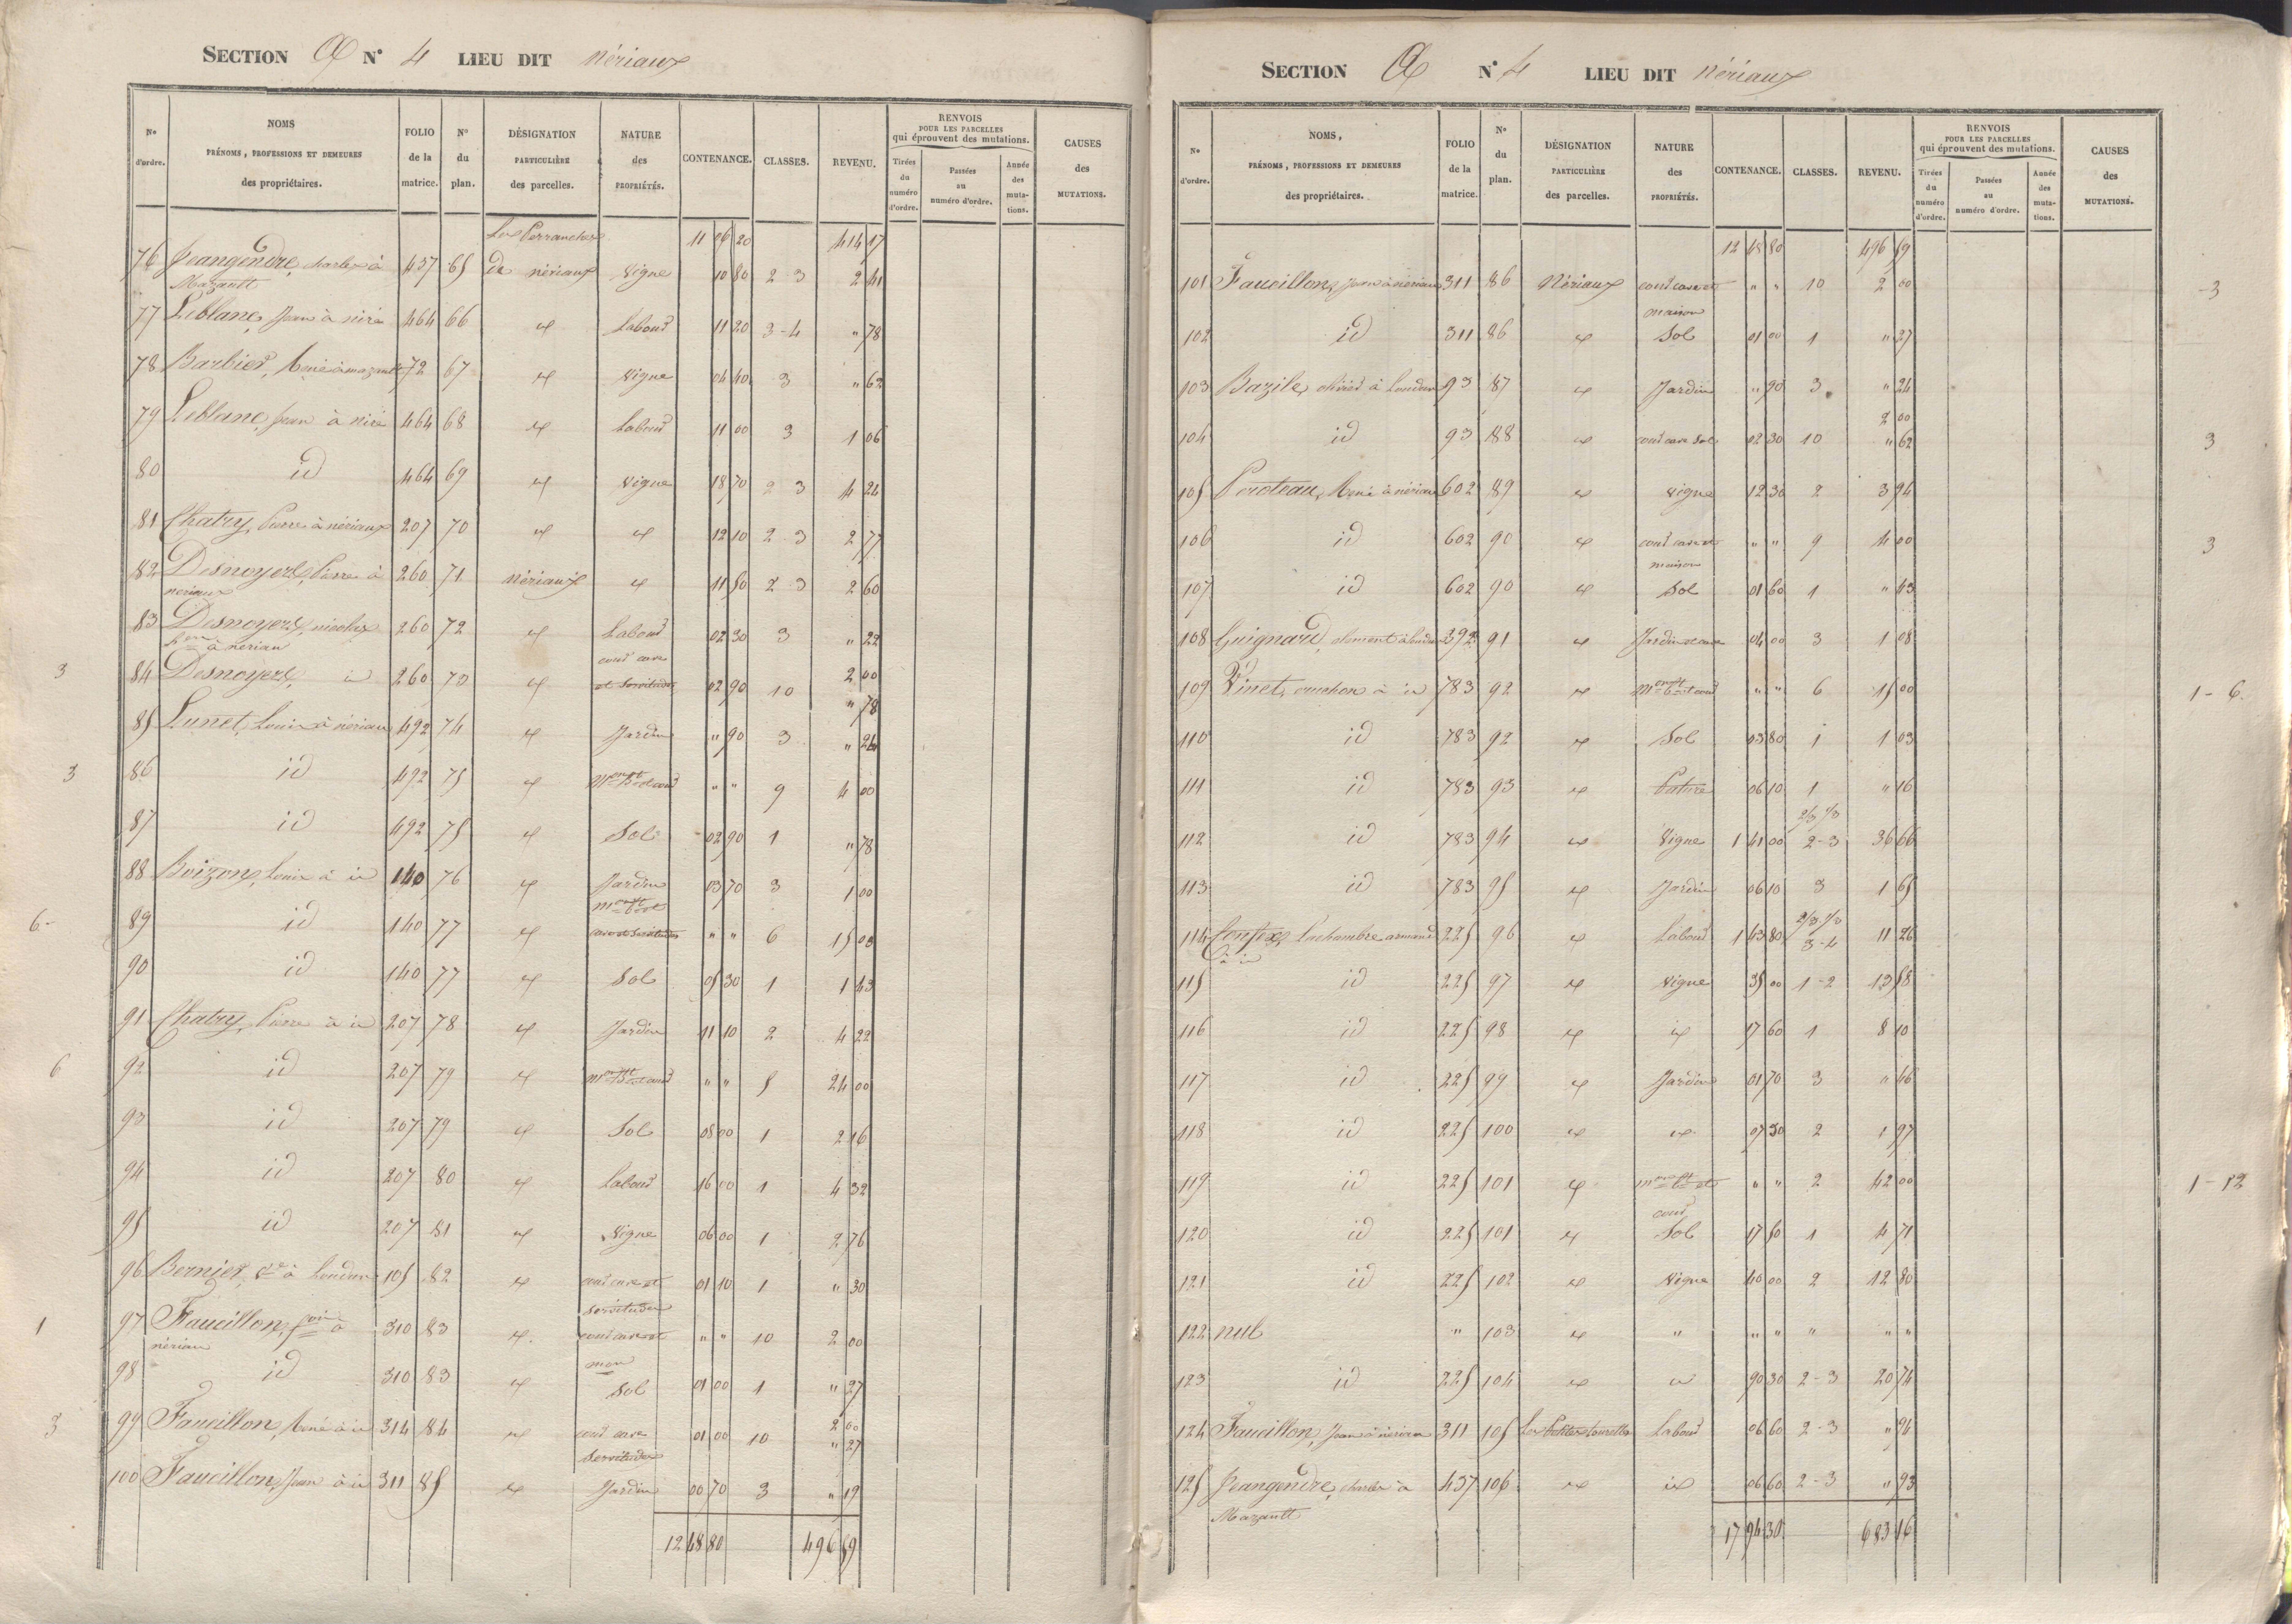 SECTION A N° 4 LIEU DIT Nériaux
N° d'ordre. NOMS PRÉNOMS, PROFESSIONS ET DEMEURES des propriétaires. FOLIO de la matrice. N° du plan. DÉSIGNATION PARTICULIÈRE des parcelles. NATURE des PROPRIÉTÉS. CONTENANCE. CLASSES. REVENU. RENVOIS POUR LES PARCELLES qui éprouvent des mutations. Tirées du numéro d'ordre. Passées au numéro d'ordre. Année des mutations. CAUSES des MUTATIONS.
Les 11 06 20 414 17
76 Jeangendre, charles à 437 65 de nériaux vigne 10 80 2-3 2 41
Mazault
77 Leblanc, Jean à niré 464 66 id labour 11 20 3-4 " 78
78 Barbier, René à mazault 72 67 id vigne 04 40 3 " 62
79 Leblanc, Jean à niré 464 68 id labour 11 00 3 1 06
80 id 464 69 id vigne 18 70 2 3 4 24
81 Chatry, Pierre à nériaux 207 70 id id 12 10 2-3 2 77
82 Desnoyers, Pierre à 260 71 nériaux id 11 50 2 3 2 60
nériaux
83 Desnoyers, nicolas 260 72 id labour 02 30 3 " 22
à nériau
cour cave 2 00
3 84 Desnoyers, id 260 73 id et servitudes 02 90 10 " 78
85 Lunet, Louis à nériau 492 74 id Jardin " 90 3 " 24
3 86 id 492 75 id mon bat et cour " " 9 4 00
87 id 492 75 id Sol 02 90 1 " 78
88 Boizon, Louis à id 140 76 id Jardin 03 70 3 1 00
mon bat et
6 89 id 140 77 id cave et servitudes " " 6 15 00
90 id 140 77 id Sol 05 30 1 1 43
91 Chatry, Pierre à id 207 78 id Jardin 11 10 2 4 22
6 92 id 207 79 id mon bat et cour " " 5 24 00
93 id 207 79 id Sol 08 00 1 2 16
94 id 207 80 id labour 16 00 1 4 32
95 id 207 81 id vigne 06 00 1 2 76
96 Bernier, à Loudun 105 82 id cour cave et 01 10 1 " 30
servitudes
1 97 Faucillon, à 310 83 id cour cave et " " 10 2 00
nériau mon
98 id 310 83 id Sol 01 00 1 " 27
2 00
3 99 Faucillon, René à id 314 84 id cour cave 01 00 10 " 27
servitudes
100 Faucillon, Jean à id 311 85 id Jardin 00 70 3 " 19
12 48 80 496 59
SECTION A N° 4 LIEU DIT nériaux
N° d'ordre. NOMS, PRÉNOMS, PROFESSIONS ET DEMEURES des propriétaires. FOLIO de la matrice. N° du plan. DÉSIGNATION PARTICULIÈRE des parcelles. NATURE des PROPRIÉTÉS. CONTENANCE. CLASSES. REVENU. RENVOIS POUR LES PARCELLES qui éprouvent des mutations. Tirées du numéro d'ordre. Passées au numéro d'ordre. Année des mutations. CAUSES des MUTATIONS.
12 48 80 496 59
101 Faucillon, Jean à nériau 311 86 Nériaux cour cave et " " 10 2 00 3
maison
102 id 311 86 id Sol 01 00 1 " 27
103 Bazile, olivier à Loudun 93 87 id Jardin " 90 3 " 24
2 00
104 id 93 88 id cour cave sol 02 30 10 " 62 3
105 Poroteau, René à nériau 602 89 id vigne 12 30 2 3 94
106 id 602 90 id cour cave et " " 9 4 00 3
maison
107 id 602 90 id Sol 01 60 1 " 43
108 Guignard, clement à loudun 392 91 id Jardin et cave 04 00 3 1 08
109 Vinet, cruchon à id 783 92 id mon bat et cour " " 6 15 00 1-6.
110 id 783 92 id Sol 03 80 1 1 03
111 id 783 93 id Pature 06 10 1 " 16
2/3 1/3
112 id 783 94 id vigne 1 41 00 2-3 36 66
113 id 783 95 id Jardin 06 10 3 1 65
2/3 1/3
114 Confex, Lachambre armand 225 96 id labour 1 43 80 3-4 11 26
à id
115 id 225 97 id vigne 35 00 1-2 13 58
116 id 225 98 id id 17 60 1 8 10
117 id 225 99 id Jardin 01 70 3 " 46
118 id 225 100 id id 07 30 2 1 97
119 id 225 101 id mon bat et " " 2 42 00 1-12
cour
120 id 225 101 id Sol 17 50 1 4 71
121 id 225 102 id vigne 40 00 2 12 80
122 nul " 103 id " " " " " "
123 id 225 104 id id 90 30 2-3 20 74
124 Faucillon, Jean à nériau 311 105 Les Petites tourelles labour 06 60 2-3 " 94
125 Jeangendre, charles à 437 106 id id 06 60 2-3 " 93
Mazault
17 94 30 683 16